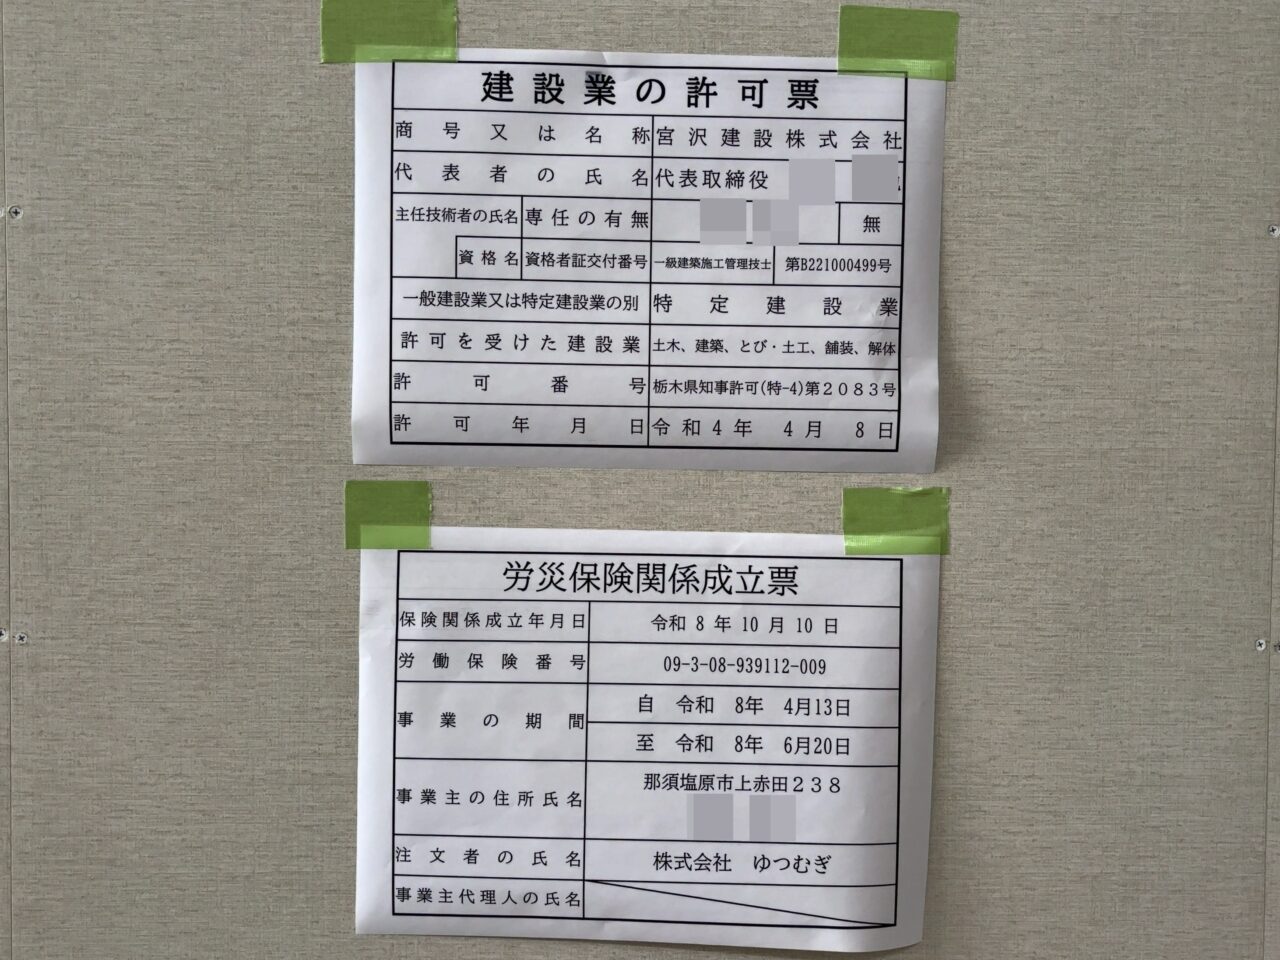 建設業の許可票
商号又は名称 宮沢建設株式会社
代表者の氏名 代表取締役
主任技術者の氏名 専任の有無 無
資格名 資格者証交付番号 一級建築施工管理技士 第B221000499号
一般建設業又は特定建設業の別 特定建設業
許可を受けた建設業 土木、建築、とび・土工、舗装、解体
許可番号 栃木県知事許可(特-4)第2083号
許可年月日 令和4年 4月 8日
労災保険関係成立票
保険関係成立年月日 令和 8 年 10 月 10 日
労働保険番号 09-3-08-939112-009
事業の期間 自 令和 8年 4月13日
至 令和 8年 6月20日
事業主の住所氏名 那須塩原市上赤田238
注文者の氏名 株式会社 ゆつむぎ
事業主代理人の氏名